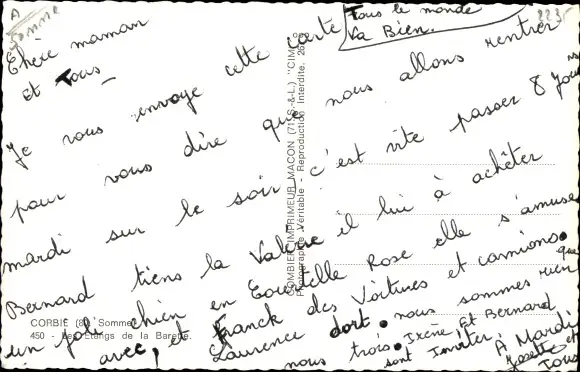 A Somme
Tous le monde
va Bien.
Chère maman
et Tous
Je vous envoye cette carte
pour vous dire que nous allons rentrer
mardi sur le soir c'est vite passer 8 jours
Bernard tiens la Valérie il lui à achêter
un joli chien en Rose elle s'amuse
avec, et Franck des Voitures et camions.
Laurence dort. nous sommes rien que
nous trois. Irène Et Bernard
sont Inviter. À Mardi
Josette et
Tous
CORBIE (80) Somme
450 - Les Étangs de la Barette.
COMBIER IMPRIMEUR MACON (71) (S.-&-L.) "CIM"
Photographie Véritable - Reproduction Interdite.